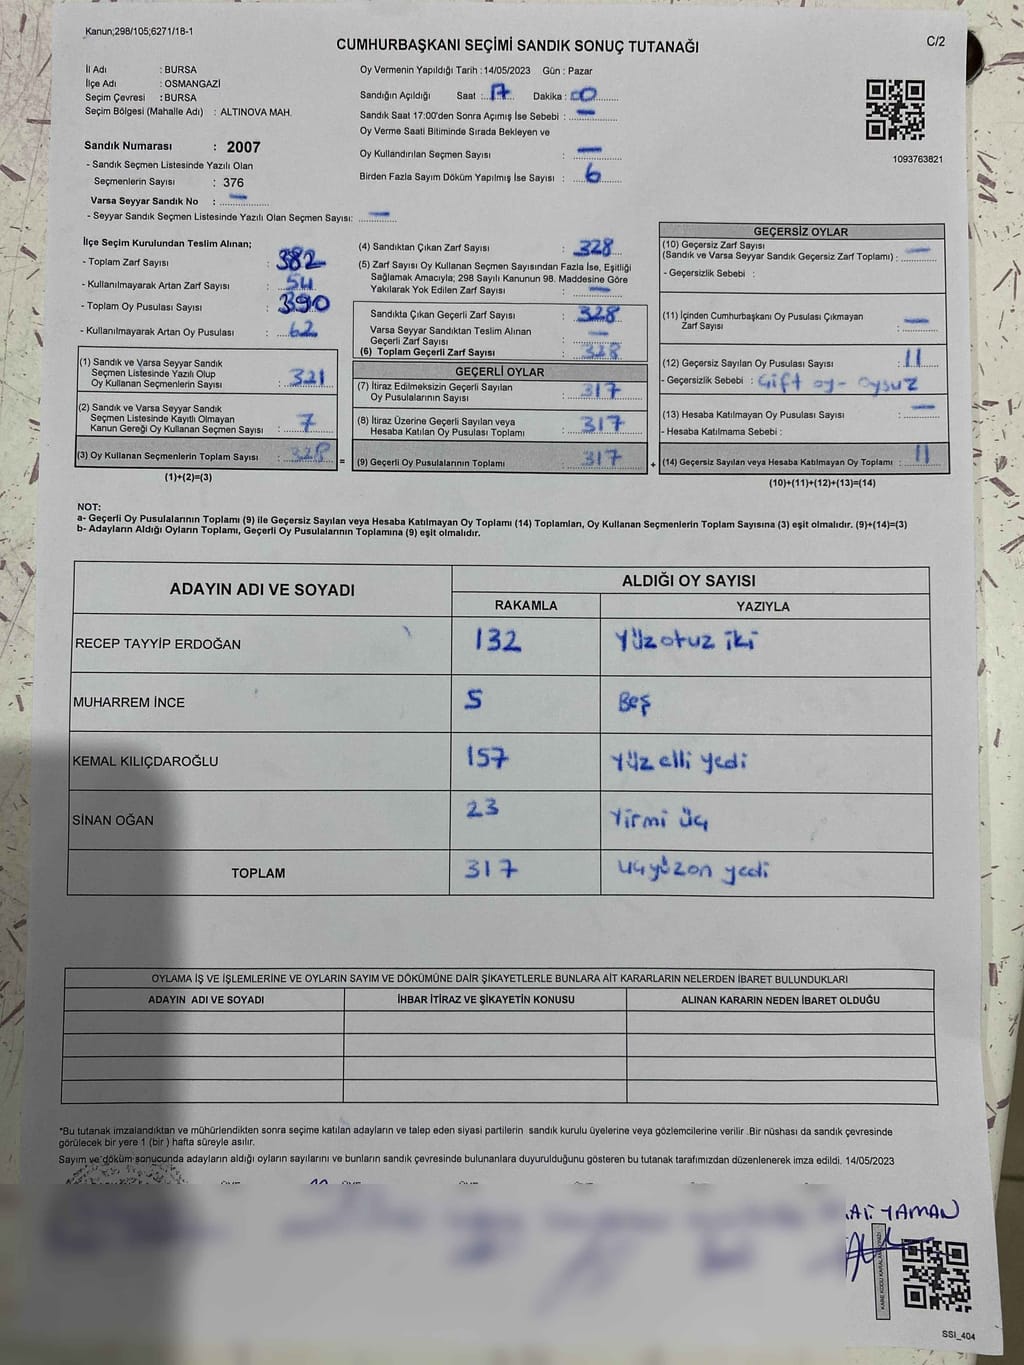 Kanun;298/105;6271/18-1
CUMHURBAŞKANI SEÇİMİ SANDIK SONUÇ TUTANAĞI
C/2
İl Adı : BURSA
İlçe Adı : OSMANGAZİ
Seçim Çevresi : BURSA
Seçim Bölgesi (Mahalle Adı) : ALTINOVA MAH.
Oy Vermenin Yapıldığı Tarih :14/05/2023 Gün : Pazar
Sandığın Açıldığı Saat : 17 Dakika : 00
Sandık Saat 17:00'den Sonra Açımış İse Sebebi : —
Oy Verme Saati Bitiminde Sırada Bekleyen ve
Oy Kullandırılan Seçmen Sayısı : —
Birden Fazla Sayım Döküm Yapılmış İse Sayısı : 6
1093763821
Sandık Numarası : 2007
- Sandık Seçmen Listesinde Yazılı Olan
Seçmenlerin Sayısı : 376
Varsa Seyyar Sandık No : —
- Seyyar Sandık Seçmen Listesinde Yazılı Olan Seçmen Sayısı: —
İlçe Seçim Kurulundan Teslim Alınan;
- Toplam Zarf Sayısı : 382
- Kullanılmayarak Artan Zarf Sayısı : 54
- Toplam Oy Pusulası Sayısı : 390
- Kullanılmayarak Artan Oy Pusulası : 62
(1) Sandık ve Varsa Seyyar Sandık
Seçmen Listesinde Yazılı Olup
Oy Kullanan Seçmenlerin Sayısı : 321
(2) Sandık ve Varsa Seyyar Sandık
Seçmen Listesinde Kayıtlı Olmayan
Kanun Gereği Oy Kullanan Seçmen Sayısı : 7
(3) Oy Kullanan Seçmenlerin Toplam Sayısı : 328 =
(1)+(2)=(3)
(4) Sandıktan Çıkan Zarf Sayısı : 328
(5) Zarf Sayısı Oy Kullanan Seçmen Sayısından Fazla İse, Eşitliği
Sağlamak Amacıyla; 298 Sayılı Kanunun 98. Maddesine Göre
Yakılarak Yok Edilen Zarf Sayısı : —
Sandıkta Çıkan Geçerli Zarf Sayısı : 328
Varsa Seyyar Sandıktan Teslim Alınan
Geçerli Zarf Sayısı : —
(6) Toplam Geçerli Zarf Sayısı : 328
GEÇERLİ OYLAR
(7) İtiraz Edilmeksizin Geçerli Sayılan
Oy Pusulalarının Sayısı : 317
(8) İtiraz Üzerine Geçerli Sayılan veya
Hesaba Katılan Oy Pusulası Toplamı : 317
(9) Geçerli Oy Pusulalarının Toplamı : 317 +
GEÇERSİZ OYLAR
(10) Geçersiz Zarf Sayısı
(Sandık ve Varsa Seyyar Sandık Geçersiz Zarf Toplamı) : —
- Geçersizlik Sebebi :
(11) İçinden Cumhurbaşkanı Oy Pusulası Çıkmayan
Zarf Sayısı : —
(12) Geçersiz Sayılan Oy Pusulası Sayısı : 11
- Geçersizlik Sebebi : Çift oy - oysuz
(13) Hesaba Katılmayan Oy Pusulası Sayısı : —
- Hesaba Katılmama Sebebi :
(14) Geçersiz Sayılan veya Hesaba Katılmayan Oy Toplamı : 11
(10)+(11)+(12)+(13)=(14)
NOT:
a- Geçerli Oy Pusulalarının Toplamı (9) ile Geçersiz Sayılan veya Hesaba Katılmayan Oy Toplamı (14) Toplamları, Oy Kullanan Seçmenlerin Toplam Sayısına (3) eşit olmalıdır. (9)+(14)=(3)
b- Adayların Aldığı Oyların Toplamı, Geçerli Oy Pusulalarının Toplamına (9) eşit olmalıdır.
ADAYIN ADI VE SOYADI ALDIĞI OY SAYISI
RAKAMLA YAZIYLA
RECEP TAYYİP ERDOĞAN 132 Yüz otuz iki
MUHARREM İNCE 5 Beş
KEMAL KILIÇDAROĞLU 157 Yüz elli yedi
SİNAN OĞAN 23 Yirmi üç
TOPLAM 317 üçyüzon yedi
OYLAMA İŞ VE İŞLEMLERİNE VE OYLARIN SAYIM VE DÖKÜMÜNE DAİR ŞİKAYETLERLE BUNLARA AİT KARARLARIN NELERDEN İBARET BULUNDUKLARI
ADAYIN ADI VE SOYADI İHBAR İTİRAZ VE ŞİKAYETİN KONUSU ALINAN KARARIN NEDEN İBARET OLDUĞU
*Bu tutanak imzalandıktan ve mühürlendikten sonra seçime katılan adayların ve talep eden siyasi partilerin sandık kurulu üyelerine veya gözlemcilerine verilir .Bir nüshası da sandık çevresinde
görülecek bir yere 1 (bir ) hafta süreyle asılır.
Sayım ve döküm sonucunda adayların aldığı oyların sayılarını ve bunların sandık çevresinde bulunanlara duyurulduğunu gösteren bu tutanak tarafımızdan düzenlenerek imza edildi. 14/05/2023
YAMAN
SSI_404